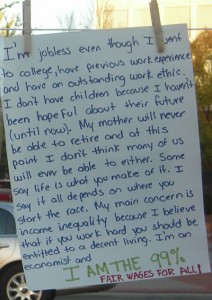 I'm jobless even though I went
to college, have previous work experience
and have an outstanding work ethic.
I don't have children because I haven't
been hopeful about their future
(until now). My mother will never
be able to retire and at this
point I don't think many of us
will ever be able to either. Some
say life is what you make of it. I
say it all depends on where you
start the race. My main concern is
income inequality because I believe
that if you work hard you should be
entitled to a decent living. I'm an
economist and
I AM THE 99%
FAIR WAGES FOR ALL!